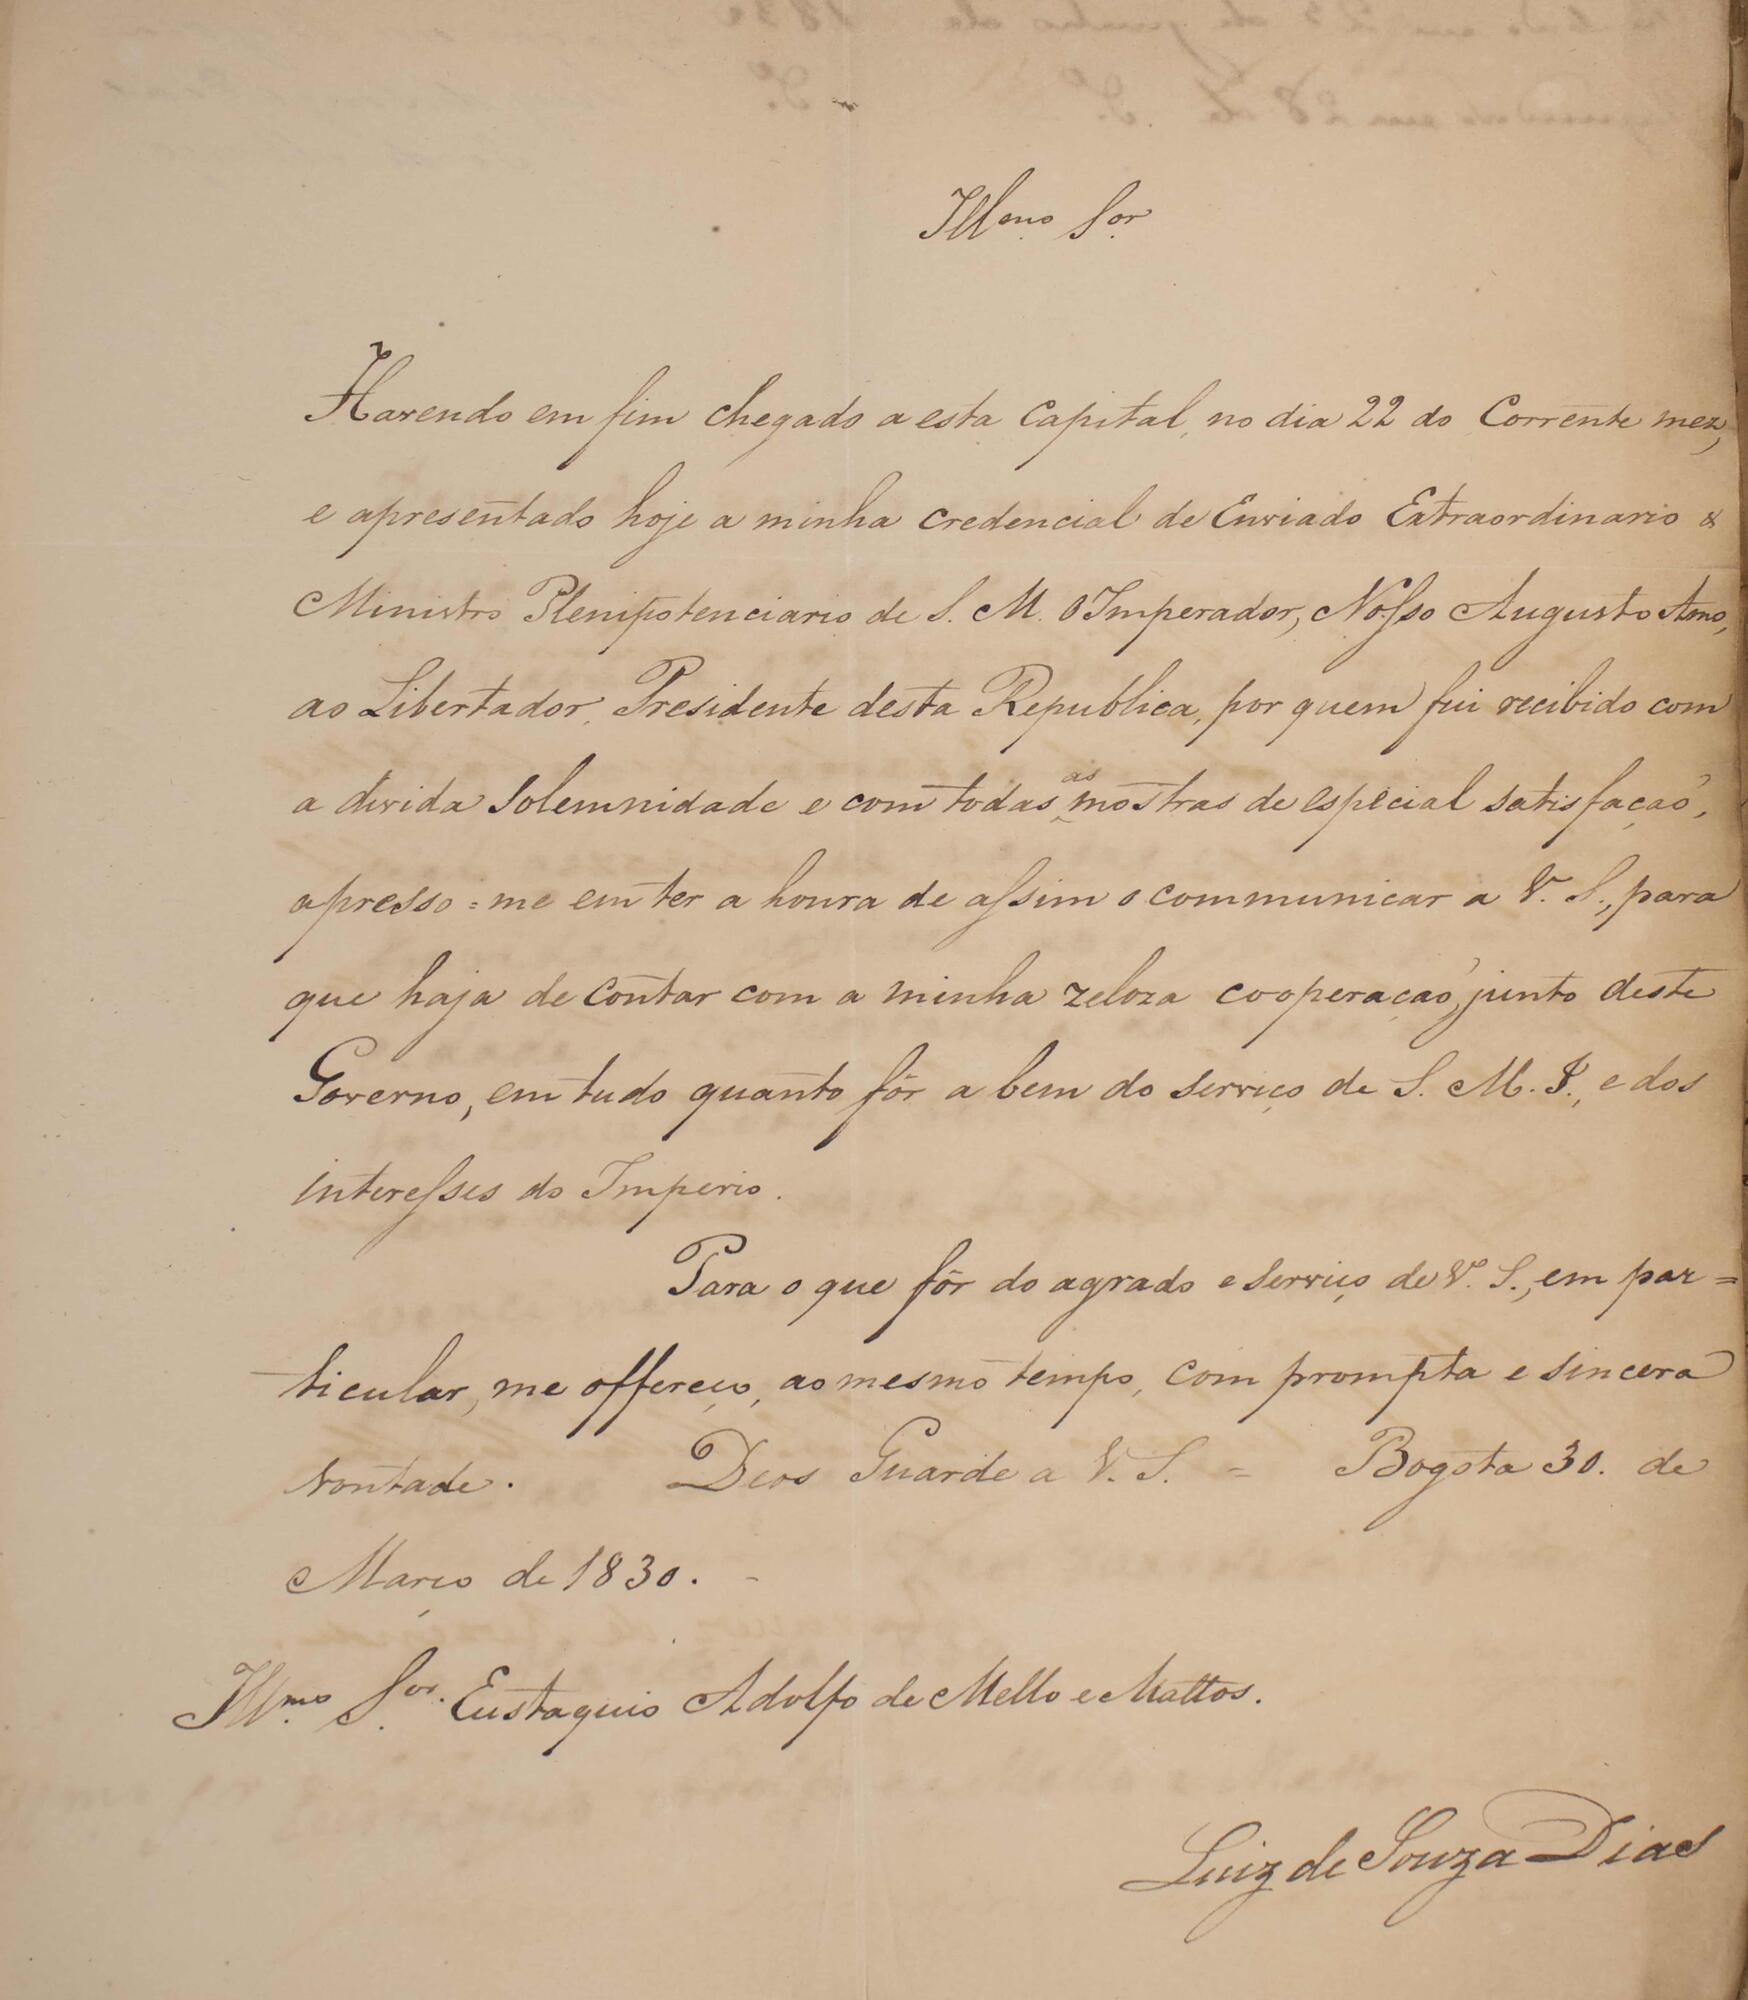 Illmo. Sor.
Havendo em fim chegado a esta Capital, no dia 22 do Corrente mez,
e apresentado hoje a minha credencial de Enviado Extraordinario &
Ministro Plenipotenciario de S. M. O Imperador, Nosso Augusto Amo,
ao Libertador, Presidente desta Republica, por quem fui recibido com
a divida Solemnidade e com todas as mostras de especial satisfação,
apresso=me em ter a honra de assim o communicar a V. S., para
que haja de Contar com a minha zeloza cooperação, junto deste
Governo, em tudo quanto fôr a bem do serviço de S. M. I., e dos
interesses do Imperio.
Para o que fôr do agrado e serviço de V. S., em par=
ticular, me offereço, ao mesmo tempo, com prompta e sincera
vontade. Deos Guarde a V. S. = Bogota 30. de
Março de 1830. -
Illmo. Sor. Eustaquio Adolfo de Mello e Mattos.
Luiz de Souza Dias